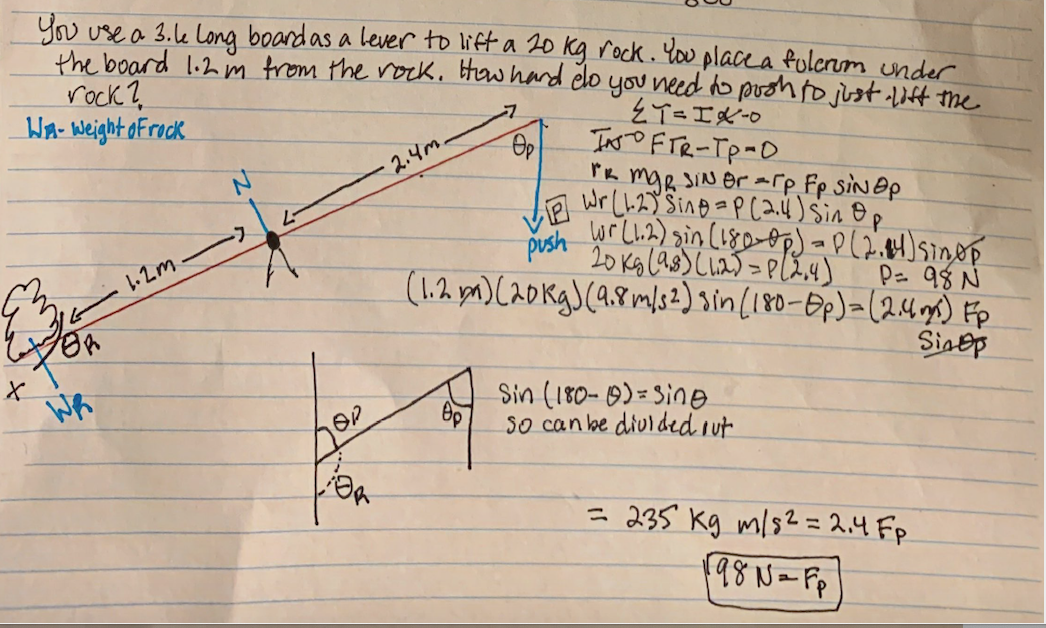 You use a 3.6 long board as a lever to lift a 20 kg rock. You place a fulcrum under
the board 1.2 m from the rock. How hard do you need to push to just lift the
rock?
WR- Weight of rock
ΣT = Iα = 0
TR - Tp = 0
rR mgR sin θr = rp Fp sin θp
Wr (1.2) sin θ = P(2.4) sin θp
Wr (1.2) sin (180-θp) = P(2.4) sin θp
20 kg (9.8)(1.2) = P(2.4) P = 98 N
(1.2 m)(20 kg)(9.8 m/s²) sin (180 - θp) = (2.4 m) Fp
Sin θp
2.4 m
θp
N
P
push
1.2 m
θR
X
WR
θP
θp
θR
Sin (180 - θ) = sin θ
so can be divided out
= 235 kg m/s² = 2.4 Fp
98 N = Fp